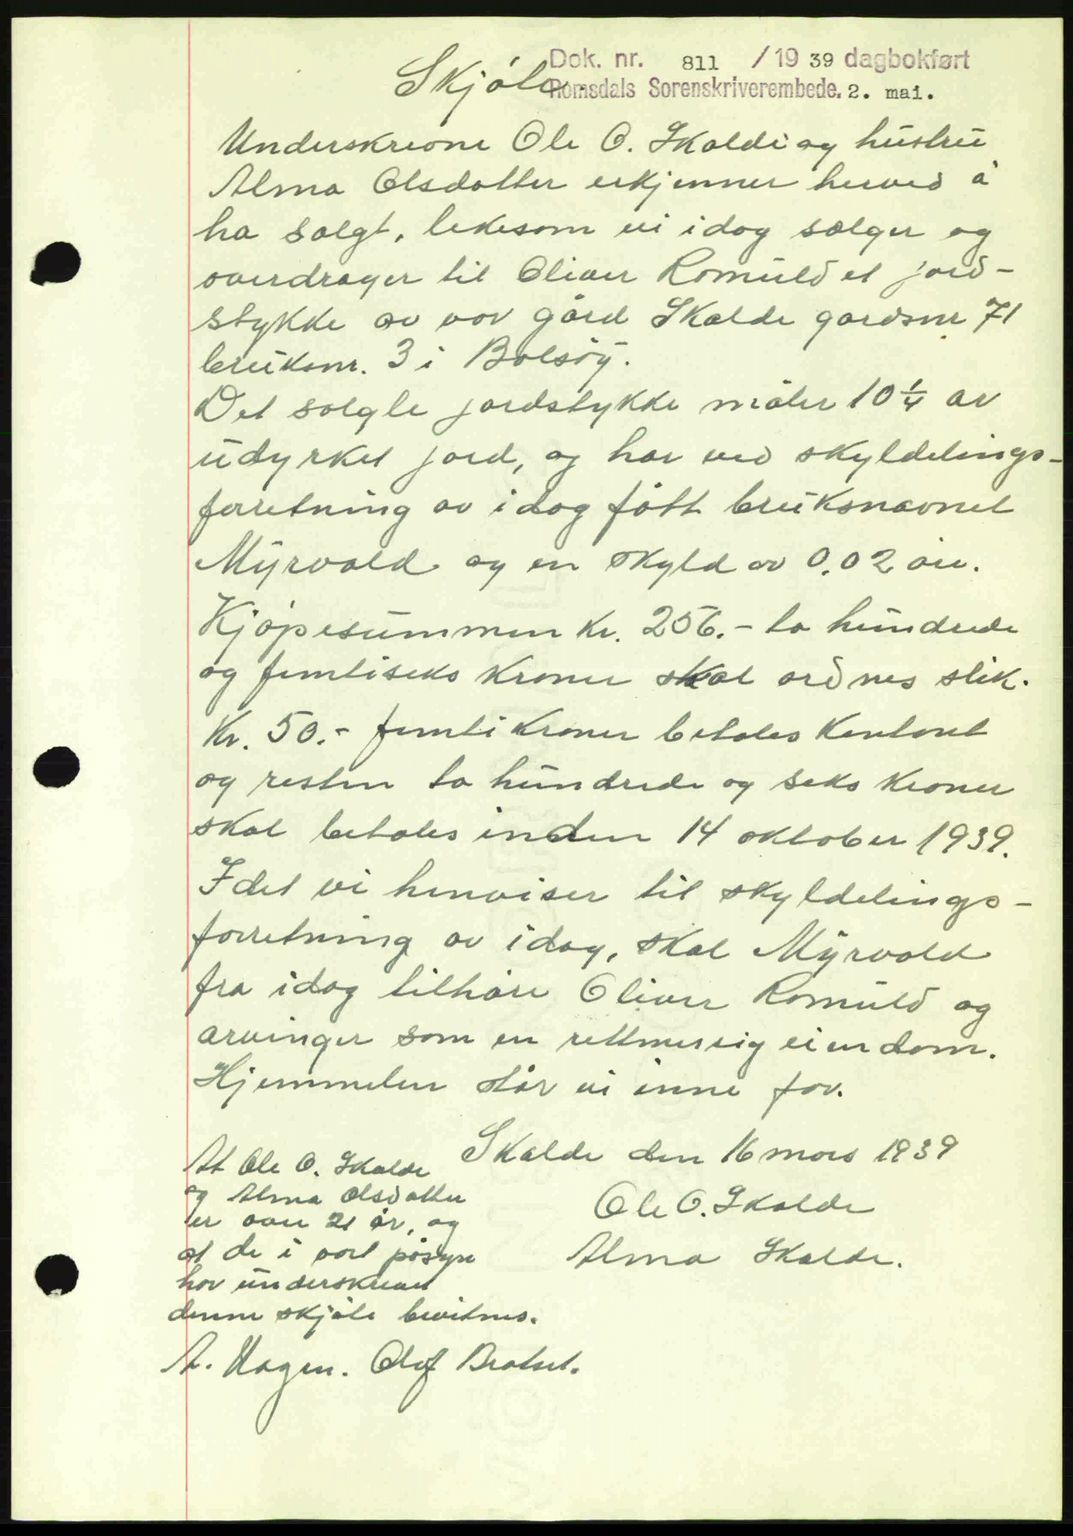 Dok. nr. 811 / 19 39 dagbokført
Romsdals Sorenskriverembede. 2. mai.
Skjöte.
Underskrevne Ole O. Skalde og hustru
Alma Olsdatter erkjenner herved å
ha solgt, likesom vi idag sælger og
overdrager til Oliver Romuld et jord-
stykke av vor gård Skalde gardsnr 71
bruksnr. 3 i Bolsöy.
Det solgte jordstykke måler 10 1/4 ar
udyrket jord, og har ved skyldelings-
forretning av idag fått bruksnavnet
Myrvold og en skyld av 0,02 öre.
Kjöpesummen kr. 256.- to hundrede
og femtiseks kroner skal ordnes slik.
Kr. 50.- femti kroner betales kontant
og resten to hundrede og seks kroner
skal betales innden 14 oktober 1939.
Idet vi henviser til skyldelings-
forretning av idag, skal Myrvold
fra idag tilhöre Oliver Romuld og
arvinger som en rettmessig eiendom.
Hjemmelen står vi inne for.
Skalde den 16 mars 1939
Ole O. Skalde
Alma Skalde.
At Ole O. Skalde
og Alma Olsdatter
er over 21 år, og
at de i vort påsyn
har underskrevet
denne skjöte bevitnes.
A. Hagen. Olaf Bratset.